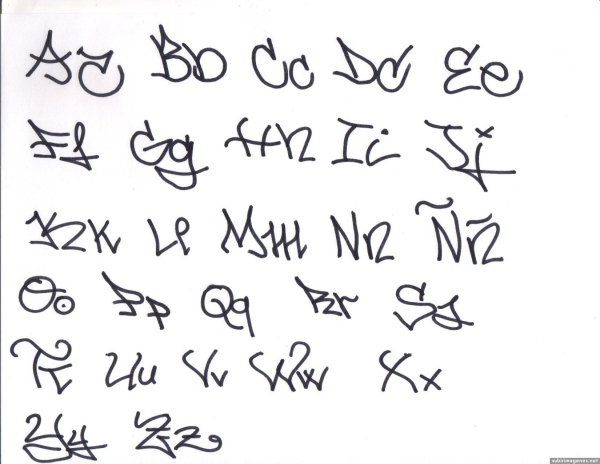 Aa Bb Cc Dd Ee
Ff Gg Hh Ii Jj
Kk Ll Mm Nn Ññ
Oo Pp Qq Rr Ss
Tt Uu Vv Ww Xx
Yy Zz
subirimagenes.net